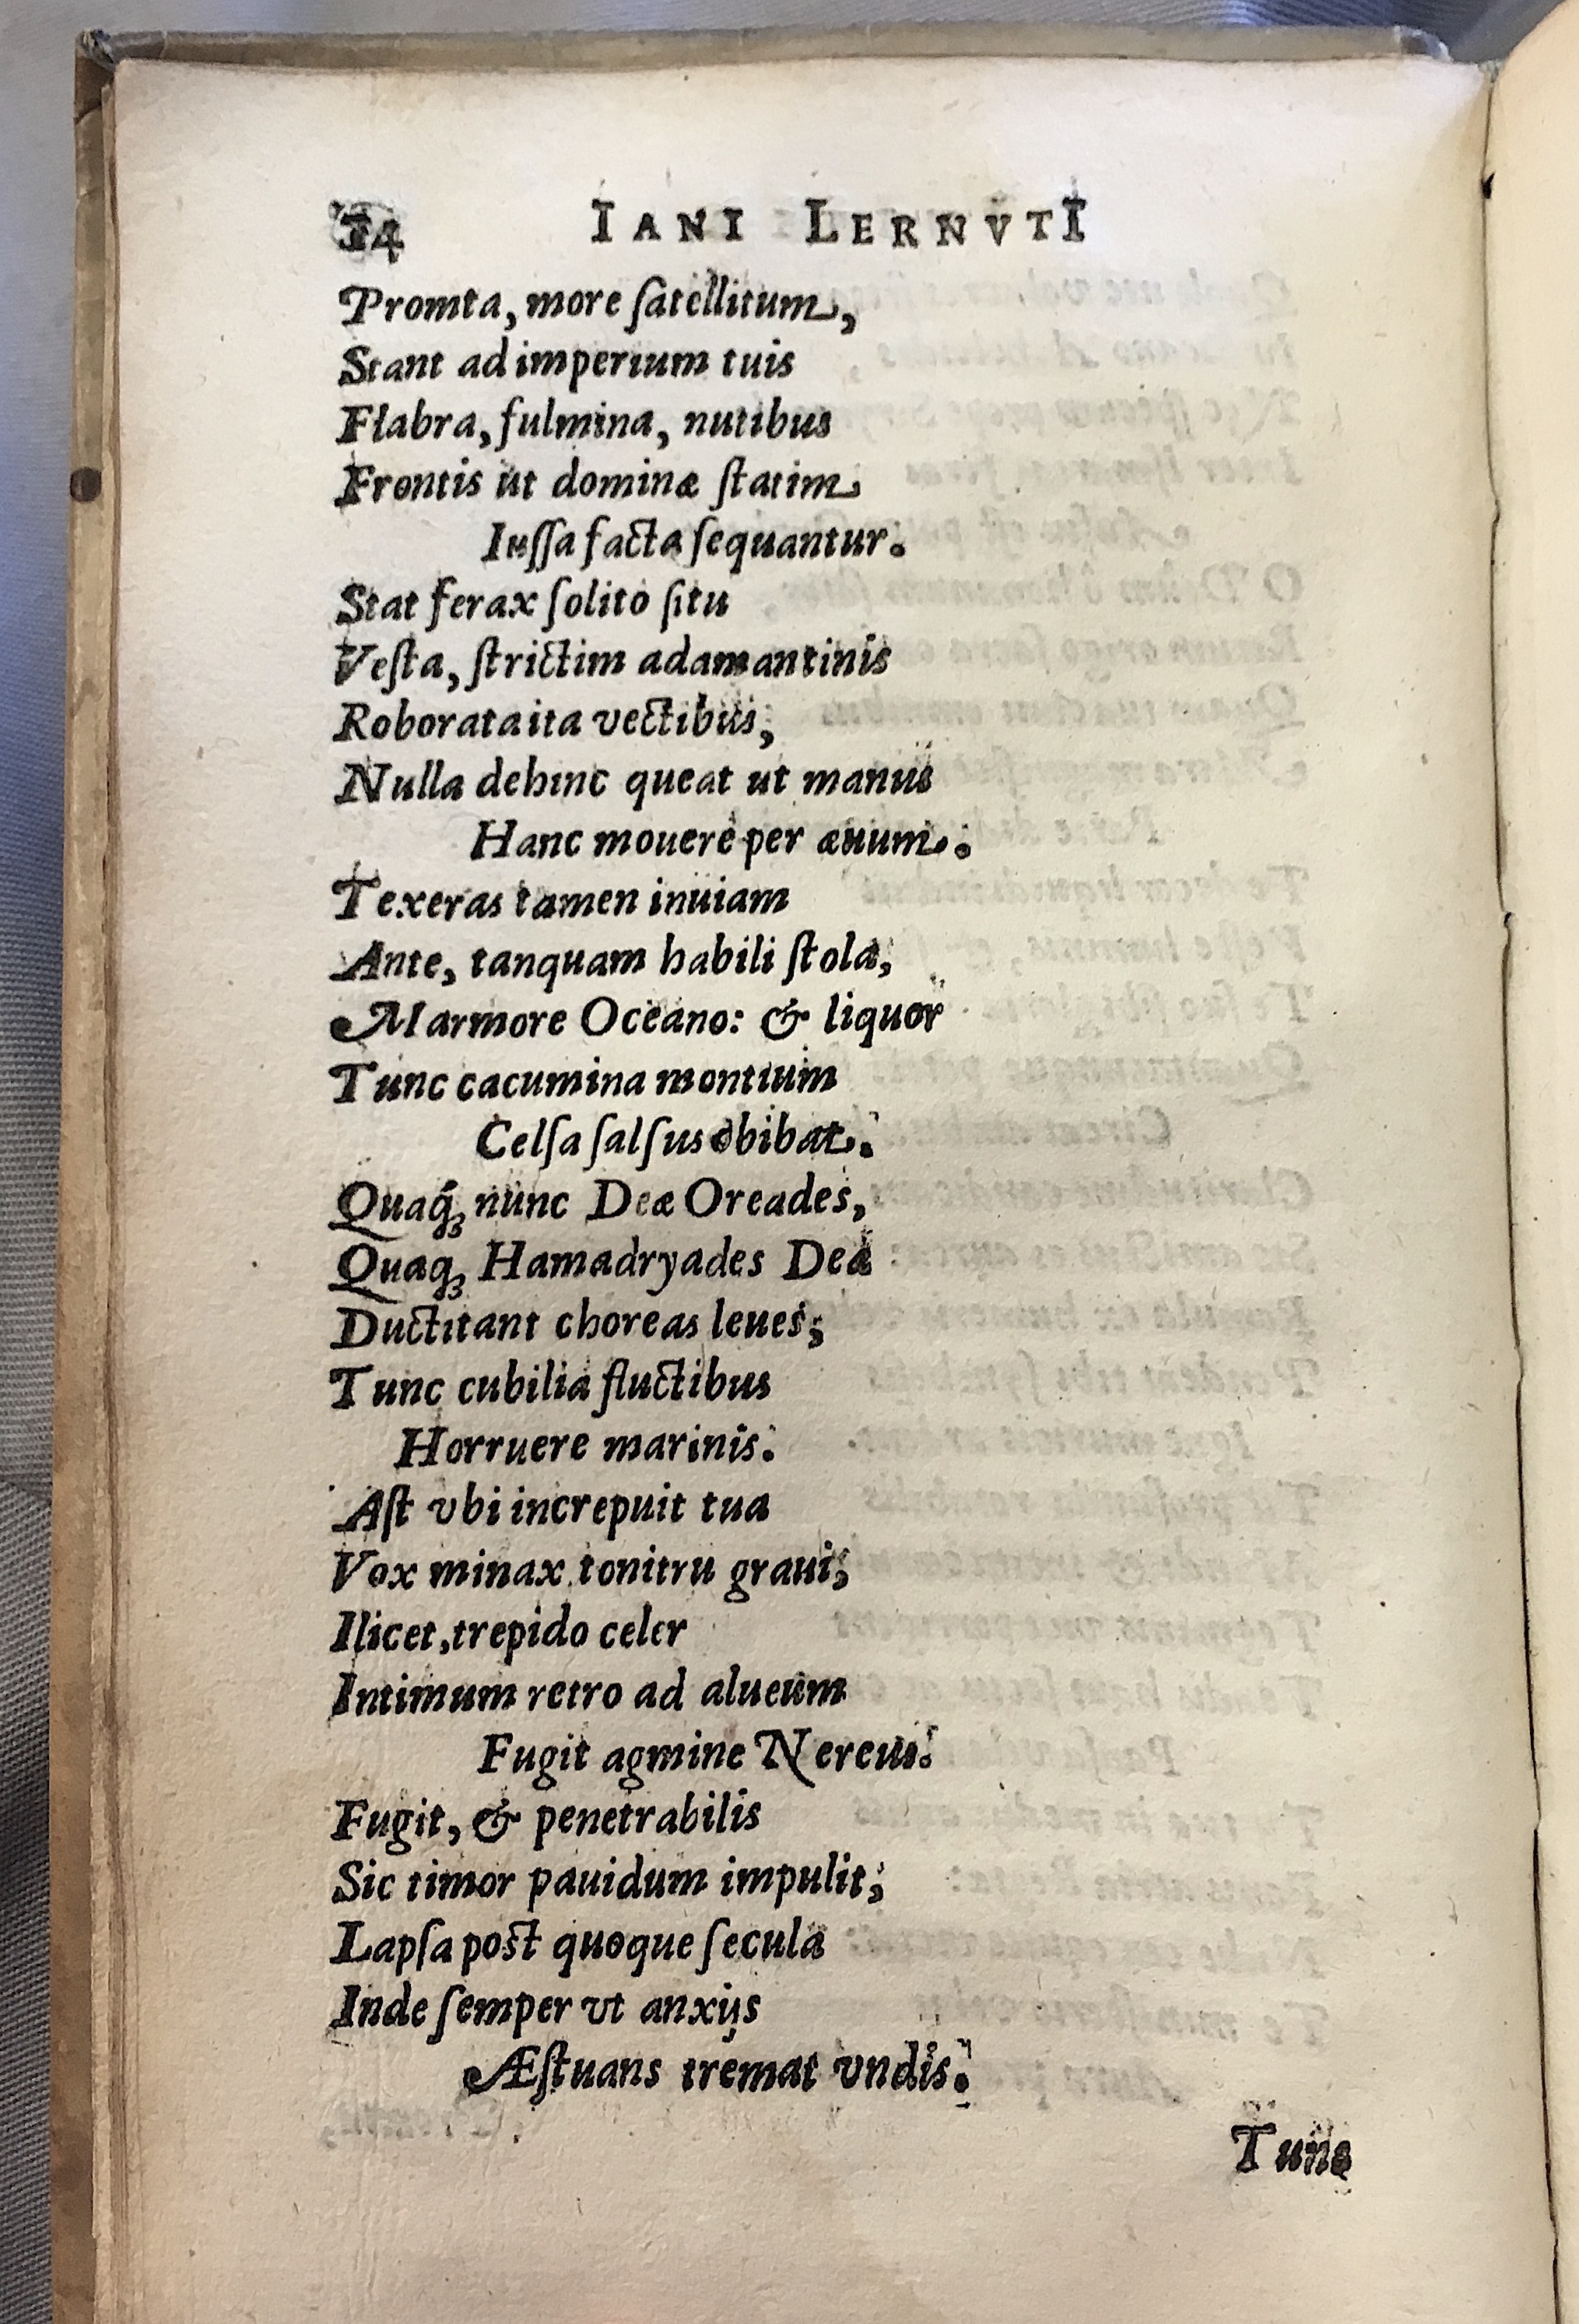 34 IANI LERNVTI
Promta, more ſatellitum,
Stant ad imperium tuis
Flabra, fulmina, nutibus
Frontis ut dominæ ſtatim
Iuſſa facta ſequantur.
Stat ferax ſolito ſitu
Veſta, ſtrictim adamantinis
Roborata ita vectibus,
Nulla dehinc queat ut manus
Hanc mouere per æuum.
Texeras tamen inuiam
Ante, tanquam habili ſtola,
Marmore Oceano: & liquor
Tunc cacumina montium
Celſa ſalſus obibat.
Quaq́ꝫ nunc Deæ Oreades,
Quaqꝫ Hamadryades Deæ
Ductitant choreas leues;
Tunc cubilia fluctibus
Horruere marinis.
Aſt vbi increpuit tua
Vox minax tonitru graui;
Ilicet, trepido celer
Intimum retro ad alueum
Fugit agmine Nereus.
Fugit, & penetrabilis
Sic timor pauidum impulit;
Lapſa post quoque ſecula
Inde ſemper vt anxijs
Æſtuans tremat vndis.
Tunc